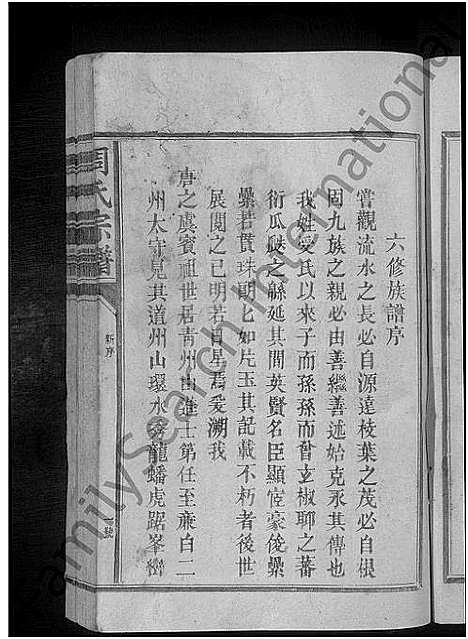 六修族譜序
嘗觀流水之長必自源遠枝葉之茂必自根
固九族之親必由善繼善述始克承其傳也
我姓受氏以來子而孫孫而曾玄椒聊之蕃
衍瓜瓞之緜延其間英賢名臣顯宦豪俊纍
纍若貫珠朗匕如片玉其記載不朽者後世
展閱之已明若日星焉爰溯我
唐之虞賓祖世居青州由進士第任至亷白二
州太守見其道州山環水秀龍蟠虎踞峯巒
周氏宗譜
新序
號
FamilySearch International